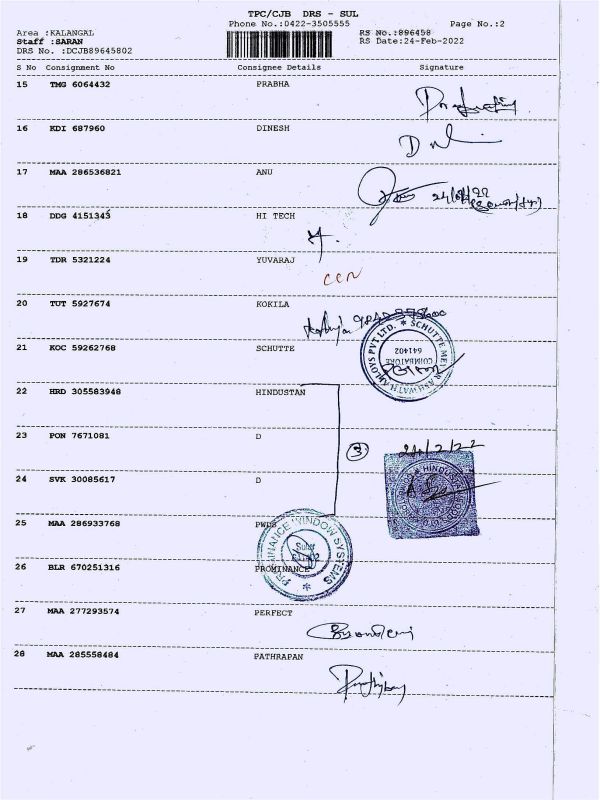 TPC/CJB DRS - SUL
Phone No.:0422-3505555 Page No.:2
Area :KALANGAL RS No.:896458
Staff :SARAN RS Date:24-Feb-2022
DRS No. :DCJB89645802
S No Consignment No Consignee Details Signature
15 TMG 6064432 PRABHA
16 KDI 687960 DINESH
17 MAA 286536821 ANU
18 DDG 4151343 HI TECH
19 TDR 5321224 YUVARAJ
20 TUT 5927674 KOKILA
21 KOC 59262768 SCHUTTE
SCHUTTE
PVT LTD.
COIMBATORE
641402
22 HRD 305583948 HINDUSTAN
23 PON 7671081 D
3 24/2/22
24 SVK 30085617 D
25 MAA 286933768 PWDS
PROMINANCE WINDOW SYSTEMS
Sulur
26 BLR 670251316 PROMINANCE
27 MAA 277293574 PERFECT
28 MAA 285558484 PATHRAPAN